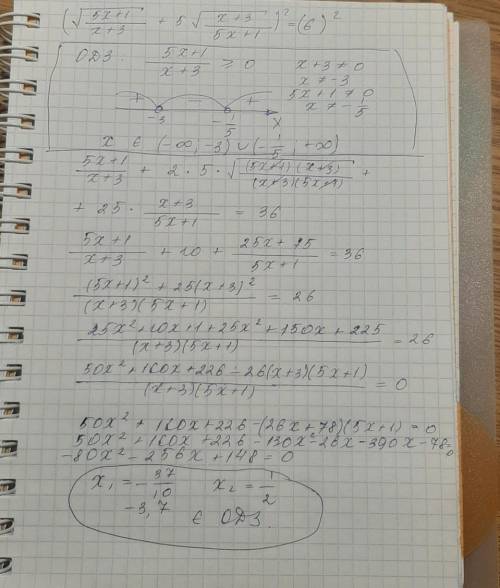 (√((5x+1)/(x+3)) + 5√((x+3)/(5x+1)))² = (6)²
ОДЗ. (5x+1)/(x+3) ≥ 0 x+3 ≠ 0
x ≠ -3
5x+1 ≠ 0
x ≠ -1/5
+ - +
-3 -1/5 x
x ∈ (-∞; -3) ∪ (-1/5; +∞)
(5x+1)/(x+3) + 2·5·√((5x+1)(x+3)/((x+3)(5x+1))) +
+ 25 · (x+3)/(5x+1) = 36
(5x+1)/(x+3) + 10 + (25x+75)/(5x+1) = 36
((5x+1)²+25(x+3)²)/((x+3)(5x+1)) = 26
(25x²+10x+1+25x²+150x+225)/((x+3)(5x+1)) = 26
(50x²+160x+226-26(x+3)(5x+1))/((x+3)(5x+1)) = 0
50x²+160x+226-(26x+78)(5x+1)=0
50x²+160x+226-130x²-26x-390x-78=0
-80x²-256x+148=0
x₁=-37/10 x₂=1/2
-3,7 ∈ ОДЗ.